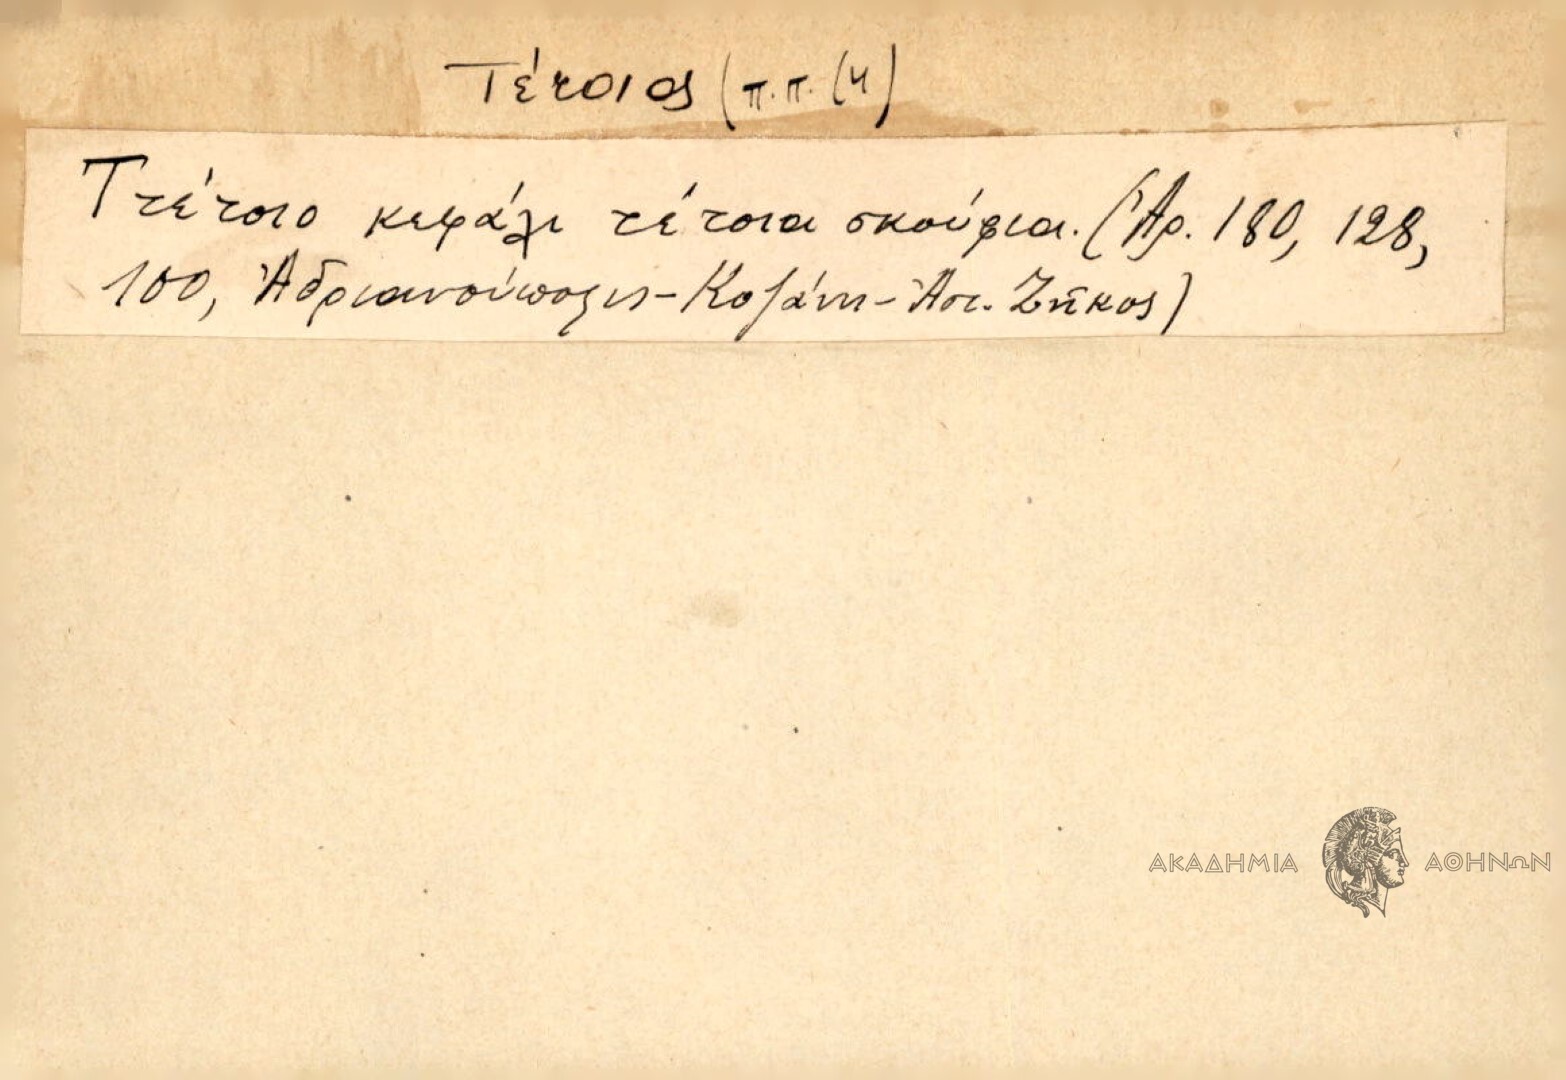 Τέτοιος (π.π. (4)
Ττέτοιο κεφάλι τέτοια σκούφια. (Ἀρ. 180, 128,
100, Ἀδριανούπολις - Κοζάνη - Ἀπ. Ζῆκος)
ΑΚΑΔΗΜΙΑ ΑΘΗΝΩΝ